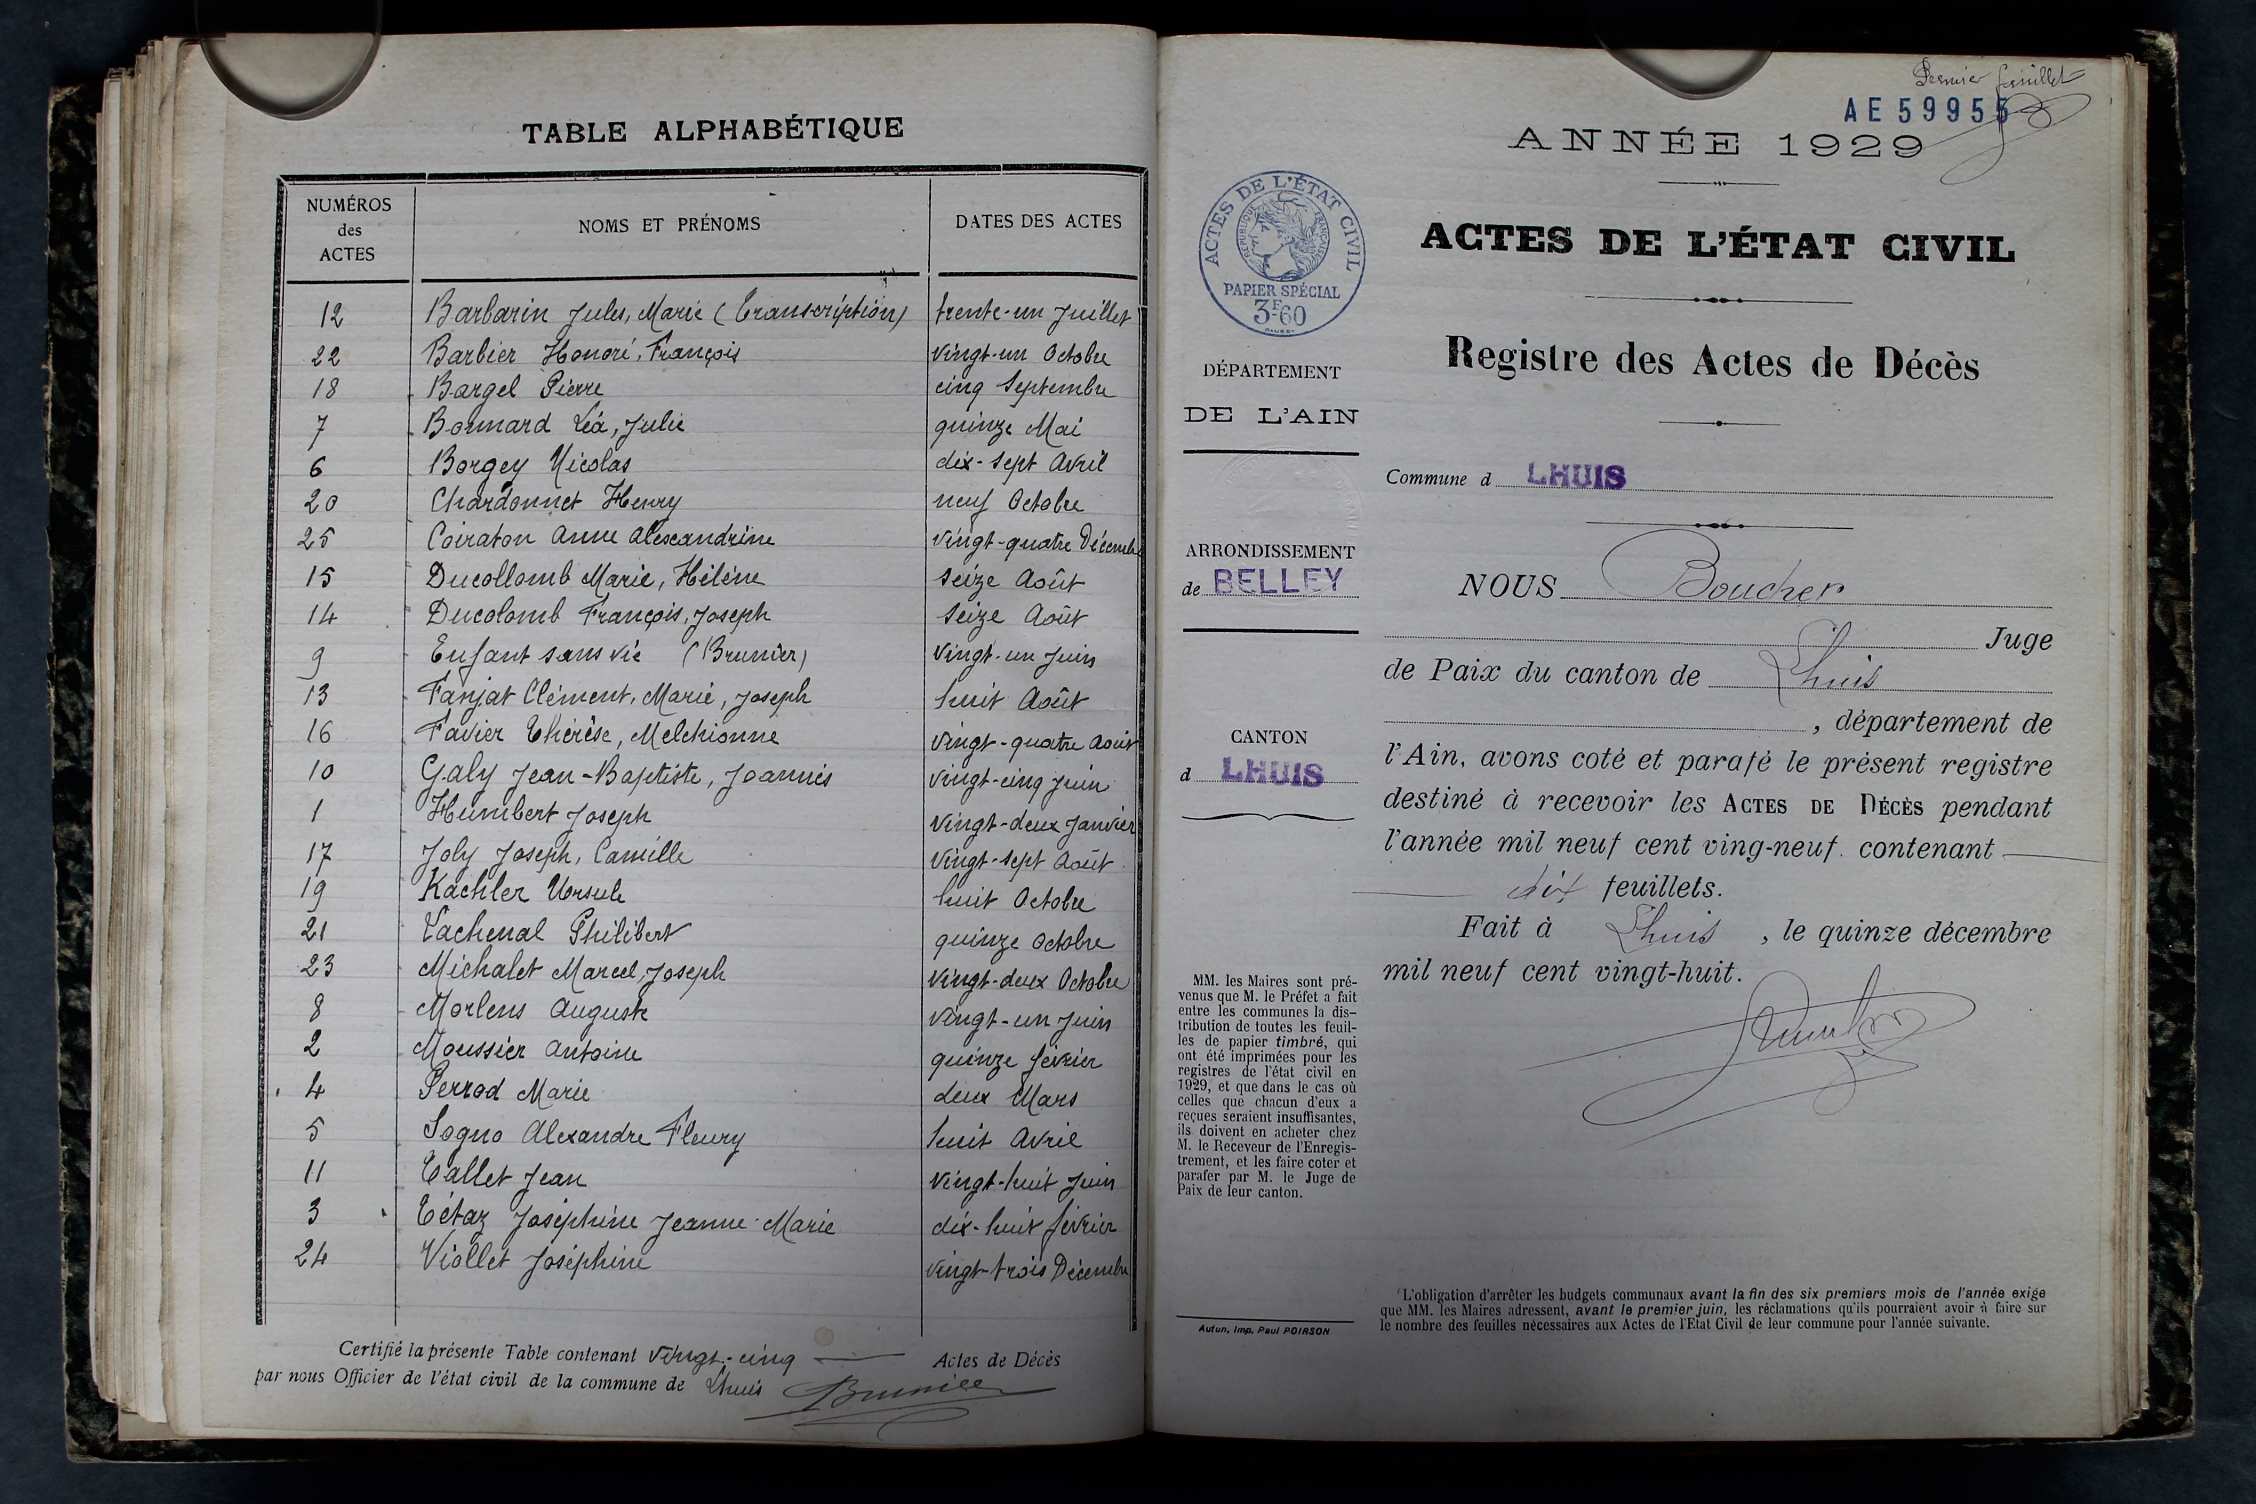 TABLE ALPHABÉTIQUE
NUMÉROS des ACTES NOMS ET PRÉNOMS DATES DES ACTES
12 Barbarin Jules, Marie (Transcription) trente-un Juillet
22 Barbier Honoré, François vingt-un Octobre
18 Bargel Pierre cinq Septembre
7 Bonnard Léa, Julie quinze Mai
6 Borgey Nicolas dix-sept Avril
20 Chardonnet Henry neuf Octobre
25 Coiraton Anne Alexandrine vingt-quatre Décembre
15 Ducollomb Marie, Hélène seize Août
14 Ducolomb François, Joseph seize Août
9 Enfant sans vie (Brunier) vingt-un Juin
13 Fanjat Clément, Marie, Joseph huit Août
16 Favier Thérèse, Melchionne vingt-quatre Août
10 Galy Jean-Baptiste, Joannès vingt-cinq Juin
1 Humbert Joseph vingt-deux Janvier
17 Joly Joseph, Camille vingt-sept Août
19 Kachler Ursule huit Octobre
21 Lachenal Philibert quinze Octobre
23 Michalet Marcel, Joseph vingt-deux Octobre
8 Morlens Auguste vingt-un Juin
2 Moussier Antoine quinze février
4 Perrod Marie deux Mars
5 Sogno Alexandre Fleury huit Avril
11 Tallet Jean vingt-huit Juin
3 Tétaz Joséphine Jeanne-Marie dix-huit février
24 Viollet Joséphine vingt-trois Décembre
Certifié la présente Table contenant vingt-cinq Actes de Décès
par nous Officier de l'état civil de la commune de Lhuis
Brunier
Premier feuillet
AE 59955
ANNÉE 1929
ACTES DE L'ÉTAT CIVIL
RÉPUBLIQUE FRANÇAISE
PAPIER SPÉCIAL
3F60
DÉPARTEMENT
DE L'AIN
ARRONDISSEMENT
de BELLEY
CANTON
d LHUIS
MM. les Maires sont pré-
venus que M. le Préfet a fait
entre les communes la dis-
tribution de toutes les feuil-
les de papier timbré, qui
ont été imprimées pour les
registres de l'état civil en
1929, et que dans le cas où
celles que chacun d'eux a
reçues seraient insuffisantes,
ils doivent en acheter chez
M. le Receveur de l'Enregis-
trement, et les faire coter et
parafer par M. le Juge de
Paix de leur canton.
Autun, Imp. Paul POIRSON
ACTES DE L'ÉTAT CIVIL
Registre des Actes de Décès
Commune d LHUIS
NOUS Boucher
Juge
de Paix du canton de Lhuis
, département de
l'Ain, avons coté et parafé le présent registre
destiné à recevoir les ACTES DE DÉCÈS pendant
l'année mil neuf cent ving-neuf. contenant
dix feuillets.
Fait à Lhuis , le quinze décembre
mil neuf cent vingt-huit.
L'obligation d'arrêter les budgets communaux avant la fin des six premiers mois de l'année exige
que MM. les Maires adressent, avant le premier juin, les réclamations qu'ils pourraient avoir à faire sur
le nombre des feuilles nécessaires aux Actes de l'Etat Civil de leur commune pour l'année suivante.